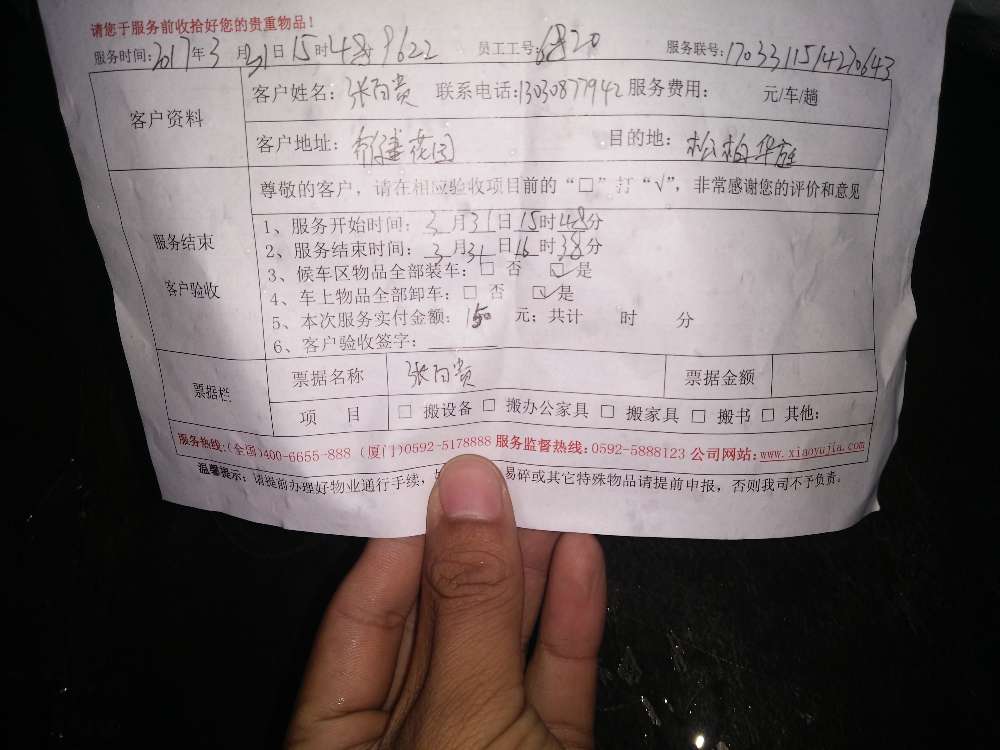 请您于服务前收拾好您的贵重物品！
服务时间：2017年3月31日15时48分 9622 员工工号：6820 服务联号：1703311514270643
客户资料
客户姓名：张百贵 联系电话：13030877942 服务费用： 元/车/趟
客户地址： 花园 目的地：松柏华庭
尊敬的客户，请在相应验收项目前的“□”打“√”，非常感谢您的评价和意见
服务结束
客户验收
1、服务开始时间：3月31日15时48分
2、服务结束时间：3月31日16时38分
3、候车区物品全部装车：□ 否 ☑ 是
4、车上物品全部卸车：□ 否 ☑ 是
5、本次服务实付金额：150 元；共计 时 分
6、客户验收签字：
票据栏
票据名称 张百贵 票据金额
项 目 □ 搬设备 □ 搬办公家具 □ 搬家具 □ 搬书 □ 其他：
服务热线：(全国)400-6655-888 (厦门)0592-5178888 服务监督热线：0592-5888123 公司网站：www.xiaoyujia.com
温馨提示：请提前办理好物业通行手续， 易碎或其它特殊物品请提前申报，否则我司不予负责。